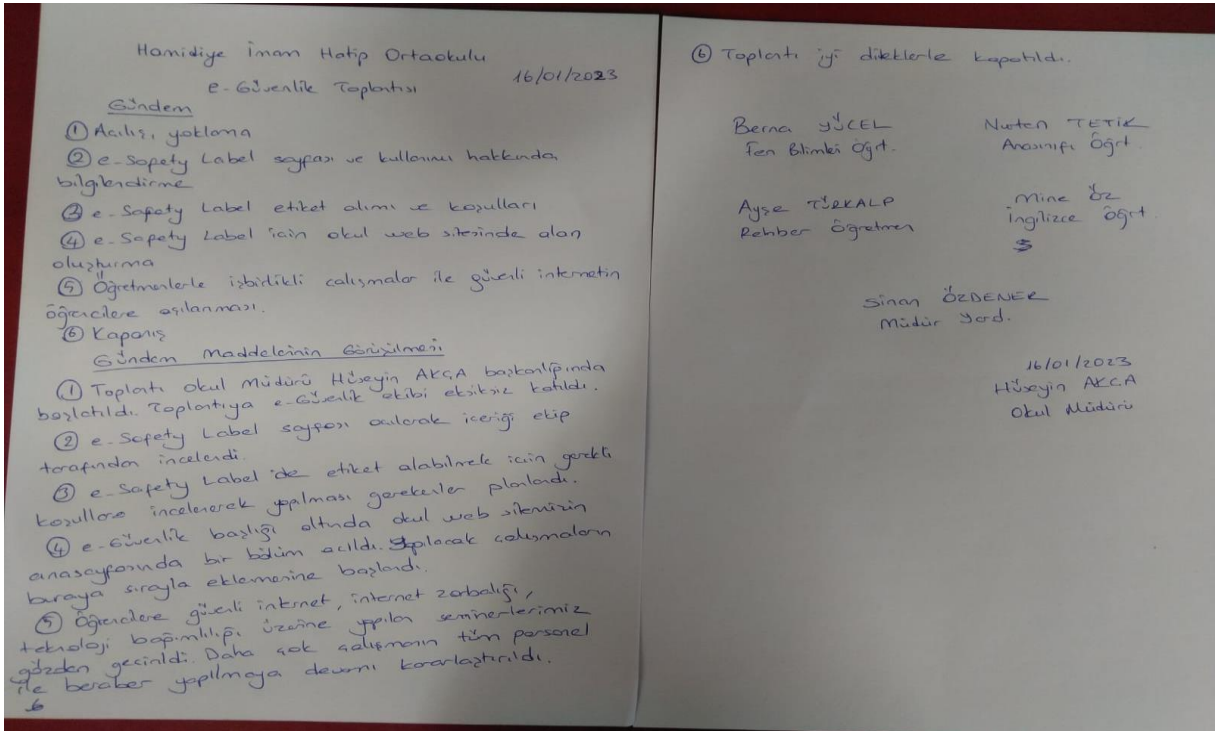 Hamidiye İmam Hatip Ortaokulu
e-Güvenlik Toplantısı
16/01/2023
Gündem
① Açılış, yoklama
② e-Safety Label sayfası ve kullanımı hakkında
bilgilendirme
③ e-Safety Label etiket alımı ve koşulları
④ e-Safety Label için okul web sitesinde alan
oluşturma
⑤ Öğretmenlerle işbirlikli çalışmalar ile güvenli internetin
öğrencilere aşılanması.
⑥ Kapanış
Gündem Maddelerinin Görüşülmesi
① Toplantı okul Müdürü Hüseyin AKÇA başkanlığında
başlatıldı. Toplantıya e-Güvenlik ekibi eksiksiz katıldı.
② e-Safety Label sayfası açılarak içeriği ekip
tarafından incelendi.
③ e-Safety Label'de etiket alabilmek için gerekli
koşullara incelenerek yapılması gerekenler planlandı.
④ e-Güvenlik başlığı altında okul web sitemizin
anasayfasında bir bölüm açıldı. Yapılacak çalışmaların
buraya sırayla eklemenine başlandı.
⑤ Öğrencilere güvenli internet, internet zorbalığı,
teknoloji bağımlılığı üzerine yapılan seminerlerimiz
gözden geçirildi. Daha çok çalışmanın tüm personel
ile beraber yapılmaya devamı kararlaştırıldı.
6
⑥ Toplantı iyi dileklerle kapatıldı.
Berna YÜCEL
Fen Bilimleri Öğrt.
Nurten TETİK
Anasınıfı Öğrt.
Ayşe TÜRKALP
Rehber Öğretmen
Mine ÖZ
İngilizce Öğrt.
Sinan ÖZDENER
Müdür Yard.
16/01/2023
Hüseyin AKÇA
Okul Müdürü